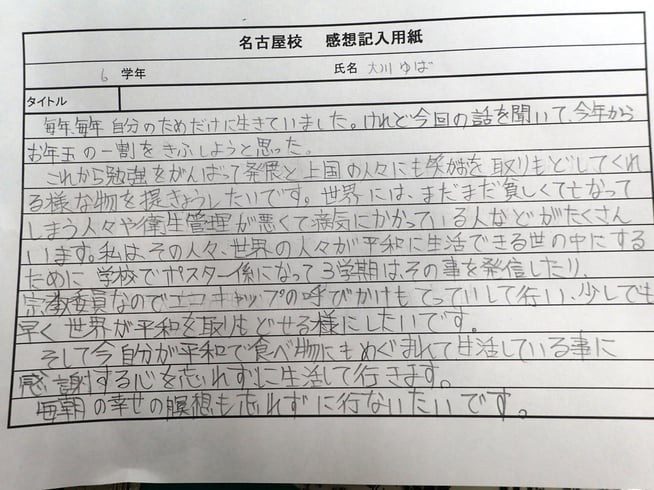 名古屋校　感想記入用紙
6 学年　氏名 大川ゆば
タイトル
毎年、毎年 自分のためだけに生きていました。けれど今回の話を聞いて、今年から
お年玉の一割をきふしようと思った。
これから勉強をがんばって発展と上国の人々にも笑顔を取りもどしてくれ
る様な物を提きょうしたいです。世界には、まだまだ貧しくて亡なって
しまう人々や衛生管理が悪くて病気にかかっている人などがたくさん
います。私は、その人々、世界の人々が平和に生活できる世の中にする
ために 学校でポスター係になって3学期は、その事を発信したり、
宗教委員なのでエコキャップの呼びかけも てっていして行い、少しでも
早く世界が平和を取りもどせる様にしたいです。
そして今自分が平和で食べ物にもめぐまれて生活している事に
感謝する心を忘れずに生活して行きます。
毎朝の幸せの瞑想も忘れずに行ないたいです。